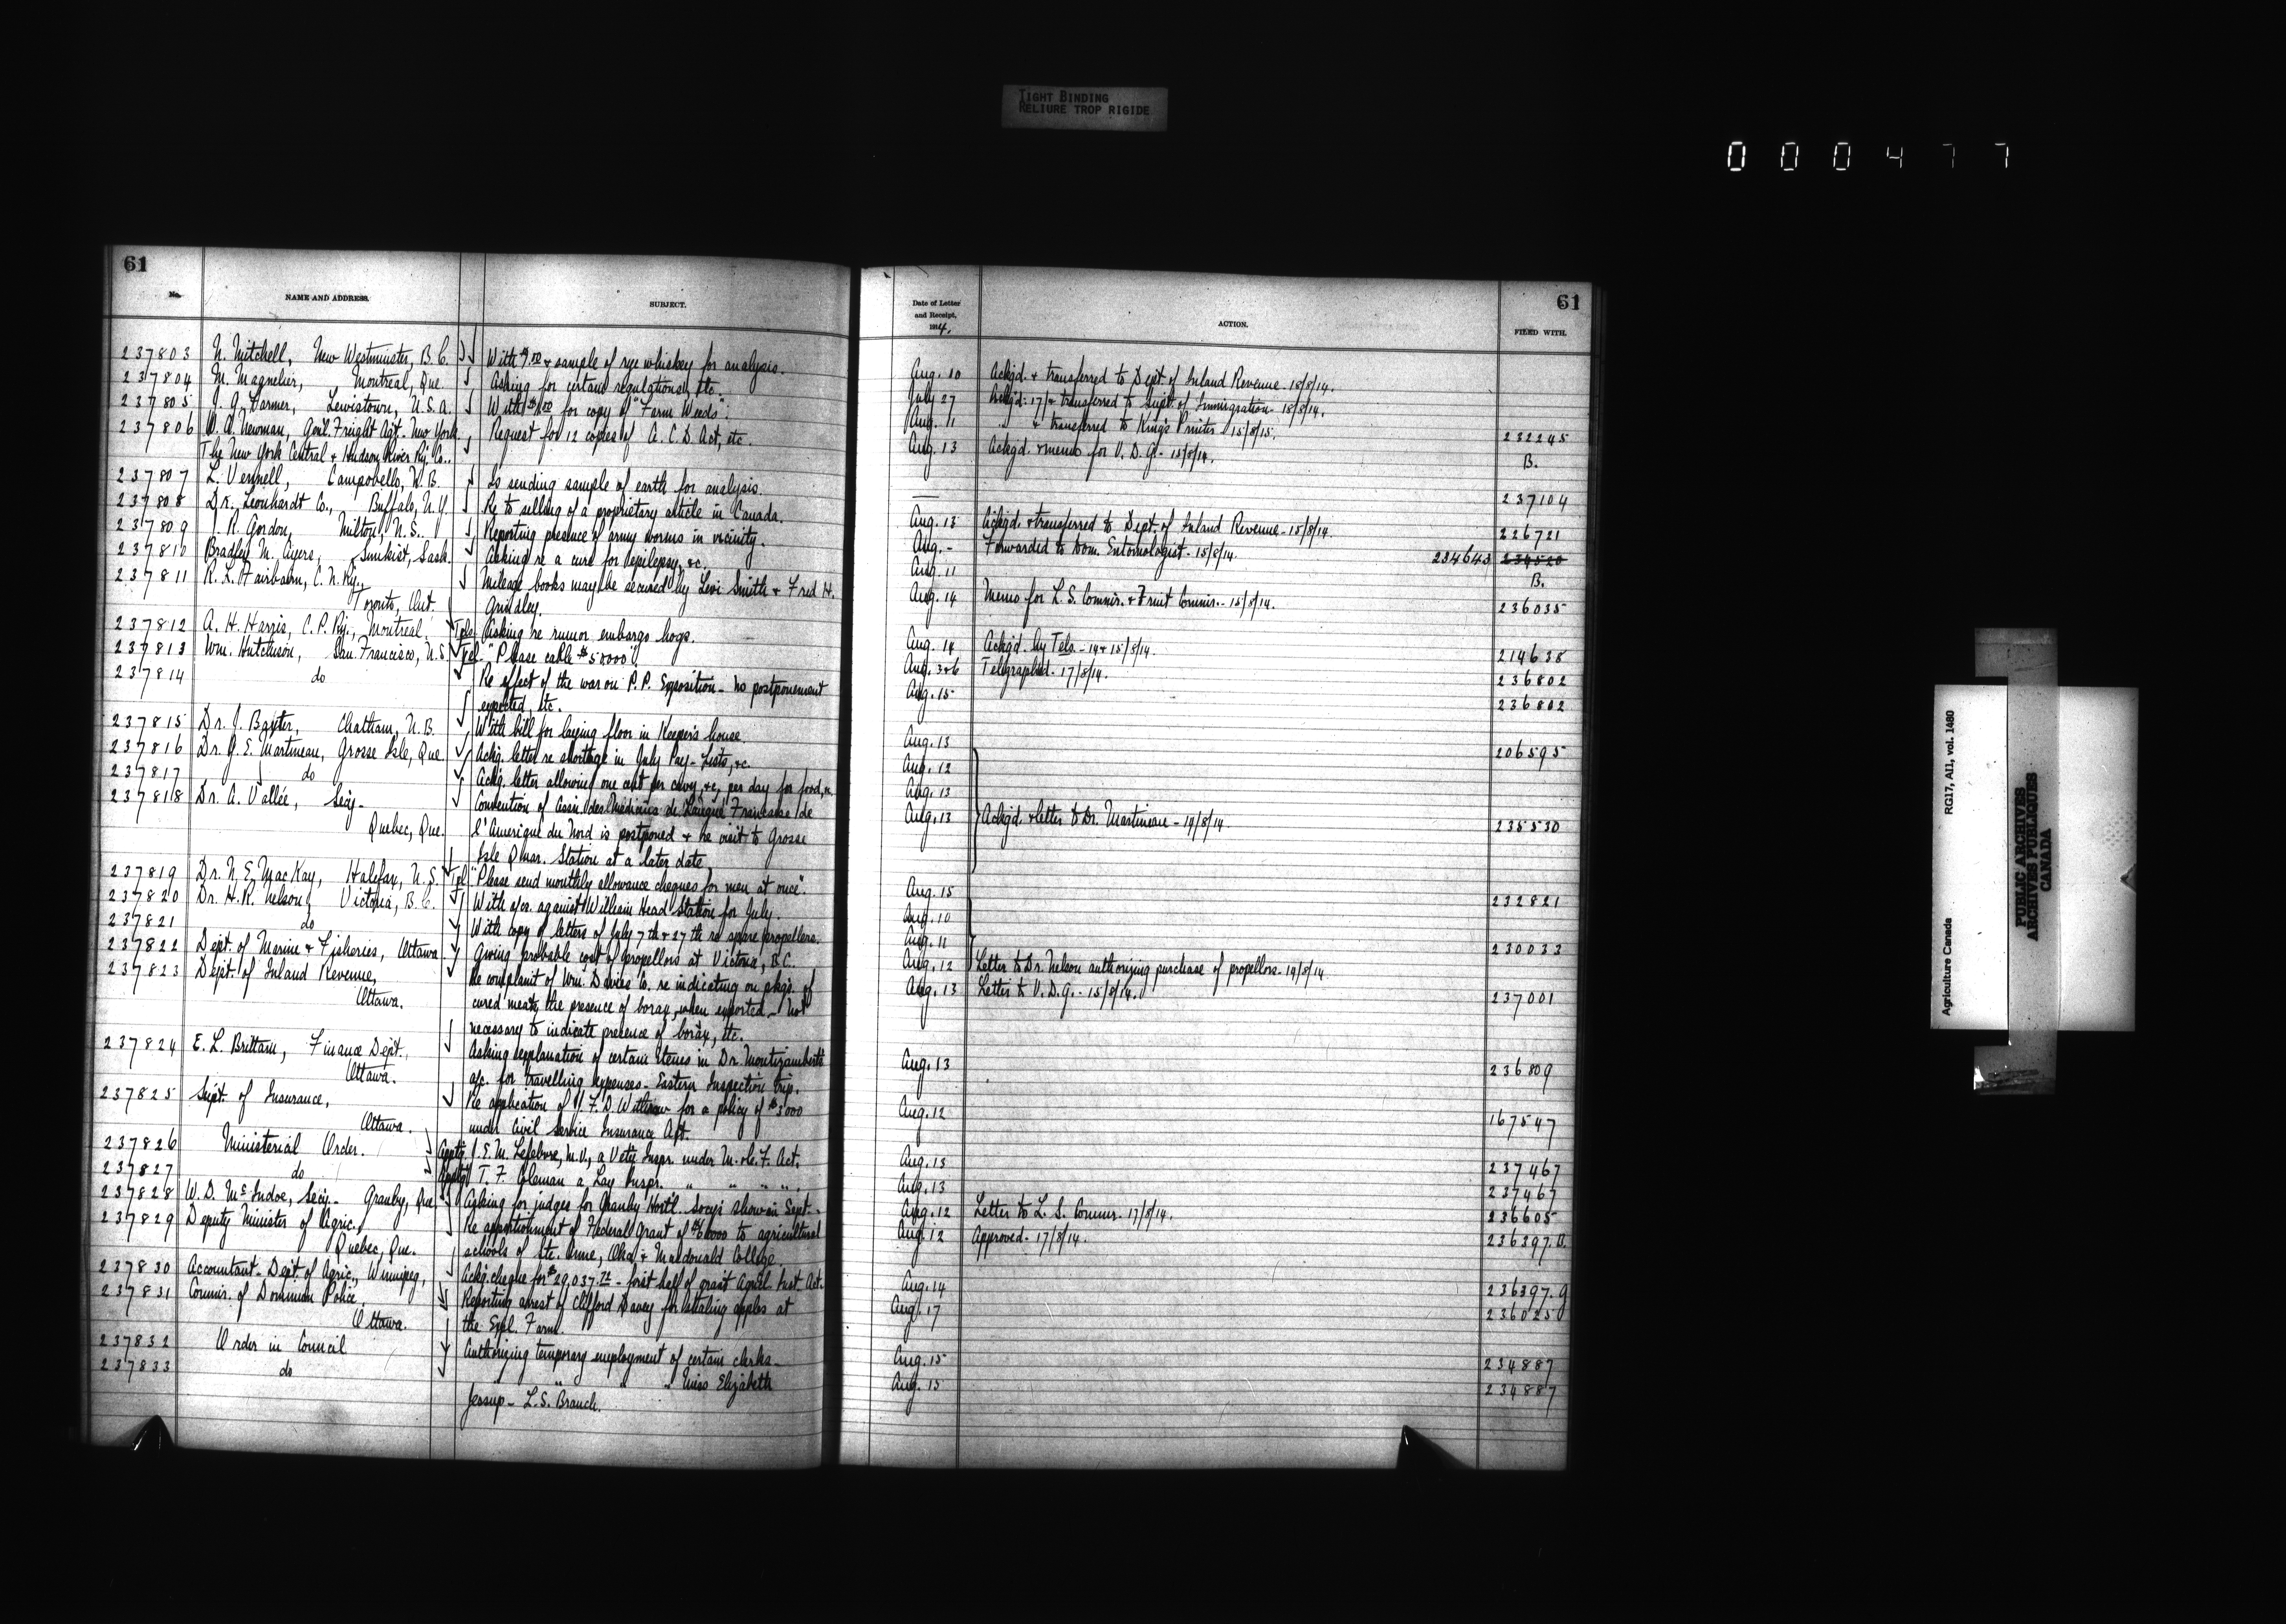 TIGHT BINDING
RELIURE TROP RIGIDE
000477
61
No. NAME AND ADDRESS. SUBJECT.
237803 N. Mitchell, New Westminster, B.C. With $1.00 & sample of rye whiskey for analysis.
237804 M. Magnelier, Montreal, Que. Asking for certain regulations, etc.
237805 J. G. Harmer, Lewistown, U.S.A. With $1.00 for copy of "Farm Weeds".
237806 W. A. Newman, Genl. Freight Agt. New York. Request for 12 copies of A.C.D. Act, etc.
The New York Central & Hudson River Ry. Co.,
237807 L. Vennell, Campobello, N.B. Is sending sample of earth for analysis.
237808 Dr. Leonhardt Co., Buffalo, N.Y. Re to selling of a proprietary article in Canada.
237809 J. R. Gordon, Milton, N.S. Reporting presence of army worms in vicinity.
237810 Bradley N. Ayers, Sunkist, Sask. Asking re a cure for epilepsy, &c.
237811 R. L. Fairbairn, C.N.Ry., Mileage books may be secured by Levi Smith & Fred H.
Toronto, Ont. Grindley.
237812 A. H. Harris, C.P.Ry., Montreal. Tels. Asking re rumor embargo hogs.
237813 Wm. Hutchison, San Francisco, U.S. Tel. "Please cable $50000".
237814 do Re effect of the war on P.P. Exposition - no postponement
expected, etc.
237815 Dr. J. Baxter, Chatham, N.B. With bill for laying floor in Keeper's house.
237816 Dr. G. E. Martineau, Grosse Isle, Que. Ackg. letter re shortage in July Pay-Lists, &c.
237817 do Ackg. letter allowing one cent per cavy, &c, per day for food, &c.
237818 Dr. A. Vallée, Secy. Convention of Assn. des Médicins de Langue Francaise de
Quebec, Que. l'Amerique du Nord is postponed & re visit to Grosse
Isle Quar. Station at a later date.
237819 Dr. N. E. MacKay, Halifax, N.S. Tel. "Please send monthly allowance cheques for men at once".
237820 Dr. H. R. Nelson, Victoria, B.C. With a/cs. against William Head Station for July.
237821 do With copy of letters of July 7th & 27th re spare propellers.
237822 Dept. of Marine & Fisheries, Ottawa Giving probable cost of propellors at Victoria, B.C.
237823 Dept. of Inland Revenue, Re complaint of Wm. Davies Co. re indicating on pkgs. of
Ottawa. cured meats the presence of borax, when exported - Not
necessary to indicate presence of borax, etc.
237824 E. L. Brittain, Finance Dept., Asking explanation of certain items in Dr. Montizambert's
Ottawa. a/c. for travelling expenses - Eastern Inspection trip.
237825 Supt. of Insurance, Re application of J. F. D. Withrow for a policy of $3000
Ottawa. under Civil Service Insurance Act.
237826 Ministerial Order. Apptg. J. E. M. Lefebvre, M.V., a Vety. Inspr. under M. & C. F. Act.
237827 do Apptg. T. F. Coleman a Lay Inspr. " " " " " .
237828 W. D. McIndoe, Secy. Granby, Que. Asking for judges for Granby Hortl. Socy's show in Sept.
237829 Deputy Minister of Agric., Re apportionment of Federal Grant of $6000 to agricultural
Quebec, Que. schools of Ste. Anne, Oka & Macdonald College.
237830 Accountant - Dept. of Agric., Winnipeg, Ackg. cheque for $29,037.72 - first half of grant Agricl. Inst. Act.
237831 Commr. of Dominion Police, Reporting arrest of Clifford Davey for stealing apples at
Ottawa. the Expl. Farm
237832 Order in Council Authorizing temporary employment of certain clerks.
237833 do " " " Miss Elizabeth
Jessup - L.S. Branch.
61
Date of Letter
and Receipt,
1914. ACTION. FILED WITH.
Aug. 10 Ackgd. & transferred to Dept. of Inland Revenue - 18/8/14.
July 27 Ackgd. 17/ & transferred to Supt. of Immigration - 18/8/14.
Aug. 11 " & transferred to King's Printer - 15/8/15. 232245
Aug. 13 Ackgd. & memo for V. D. G. - 15/8/14. B.
— 237104
Aug. 13 Ackgd. & transferred to Dept. of Inland Revenue - 15/8/14. 226721
Aug. - Forwarded to Dom. Entomologist - 15/8/14. 234643
Aug. 11 B.
Aug. 14 Memo for L. S. Commr. & Fruit Commr. - 15/8/14. 236035
Aug. 14 Ackgd. by Tels. - 14 & 15/8/14. 214638
Aug. 3&6 Telegraphed - 17/8/14. 236802
Aug. 15 236802
Aug. 13 206595
Aug. 12
Aug. 13
Aug. 13 Ackgd. & letter to Dr. Martineau - 19/8/14 235530
Aug. 15 232821
Aug. 10
Aug. 11 230033
Aug. 12 Letter to Dr. Nelson authorizing purchase of propellors - 19/8/14
Aug. 13 Letter to V. D. G. - 15/8/14. 237001
Aug. 13 236809
Aug. 12 167547
Aug. 13 237467
Aug. 13 237467
Aug. 12 Letter to L. S. Commr. 17/8/14. 236605
Aug. 12 Approved - 17/8/14. 236397.D.
Aug. 14 236397.G
Aug. 17 236025
Aug. 15 234887
Aug. 15 234887
Agriculture Canada RG17, AII, vol. 1480
PUBLIC ARCHIVES
ARCHIVES PUBLIQUES
CANADA